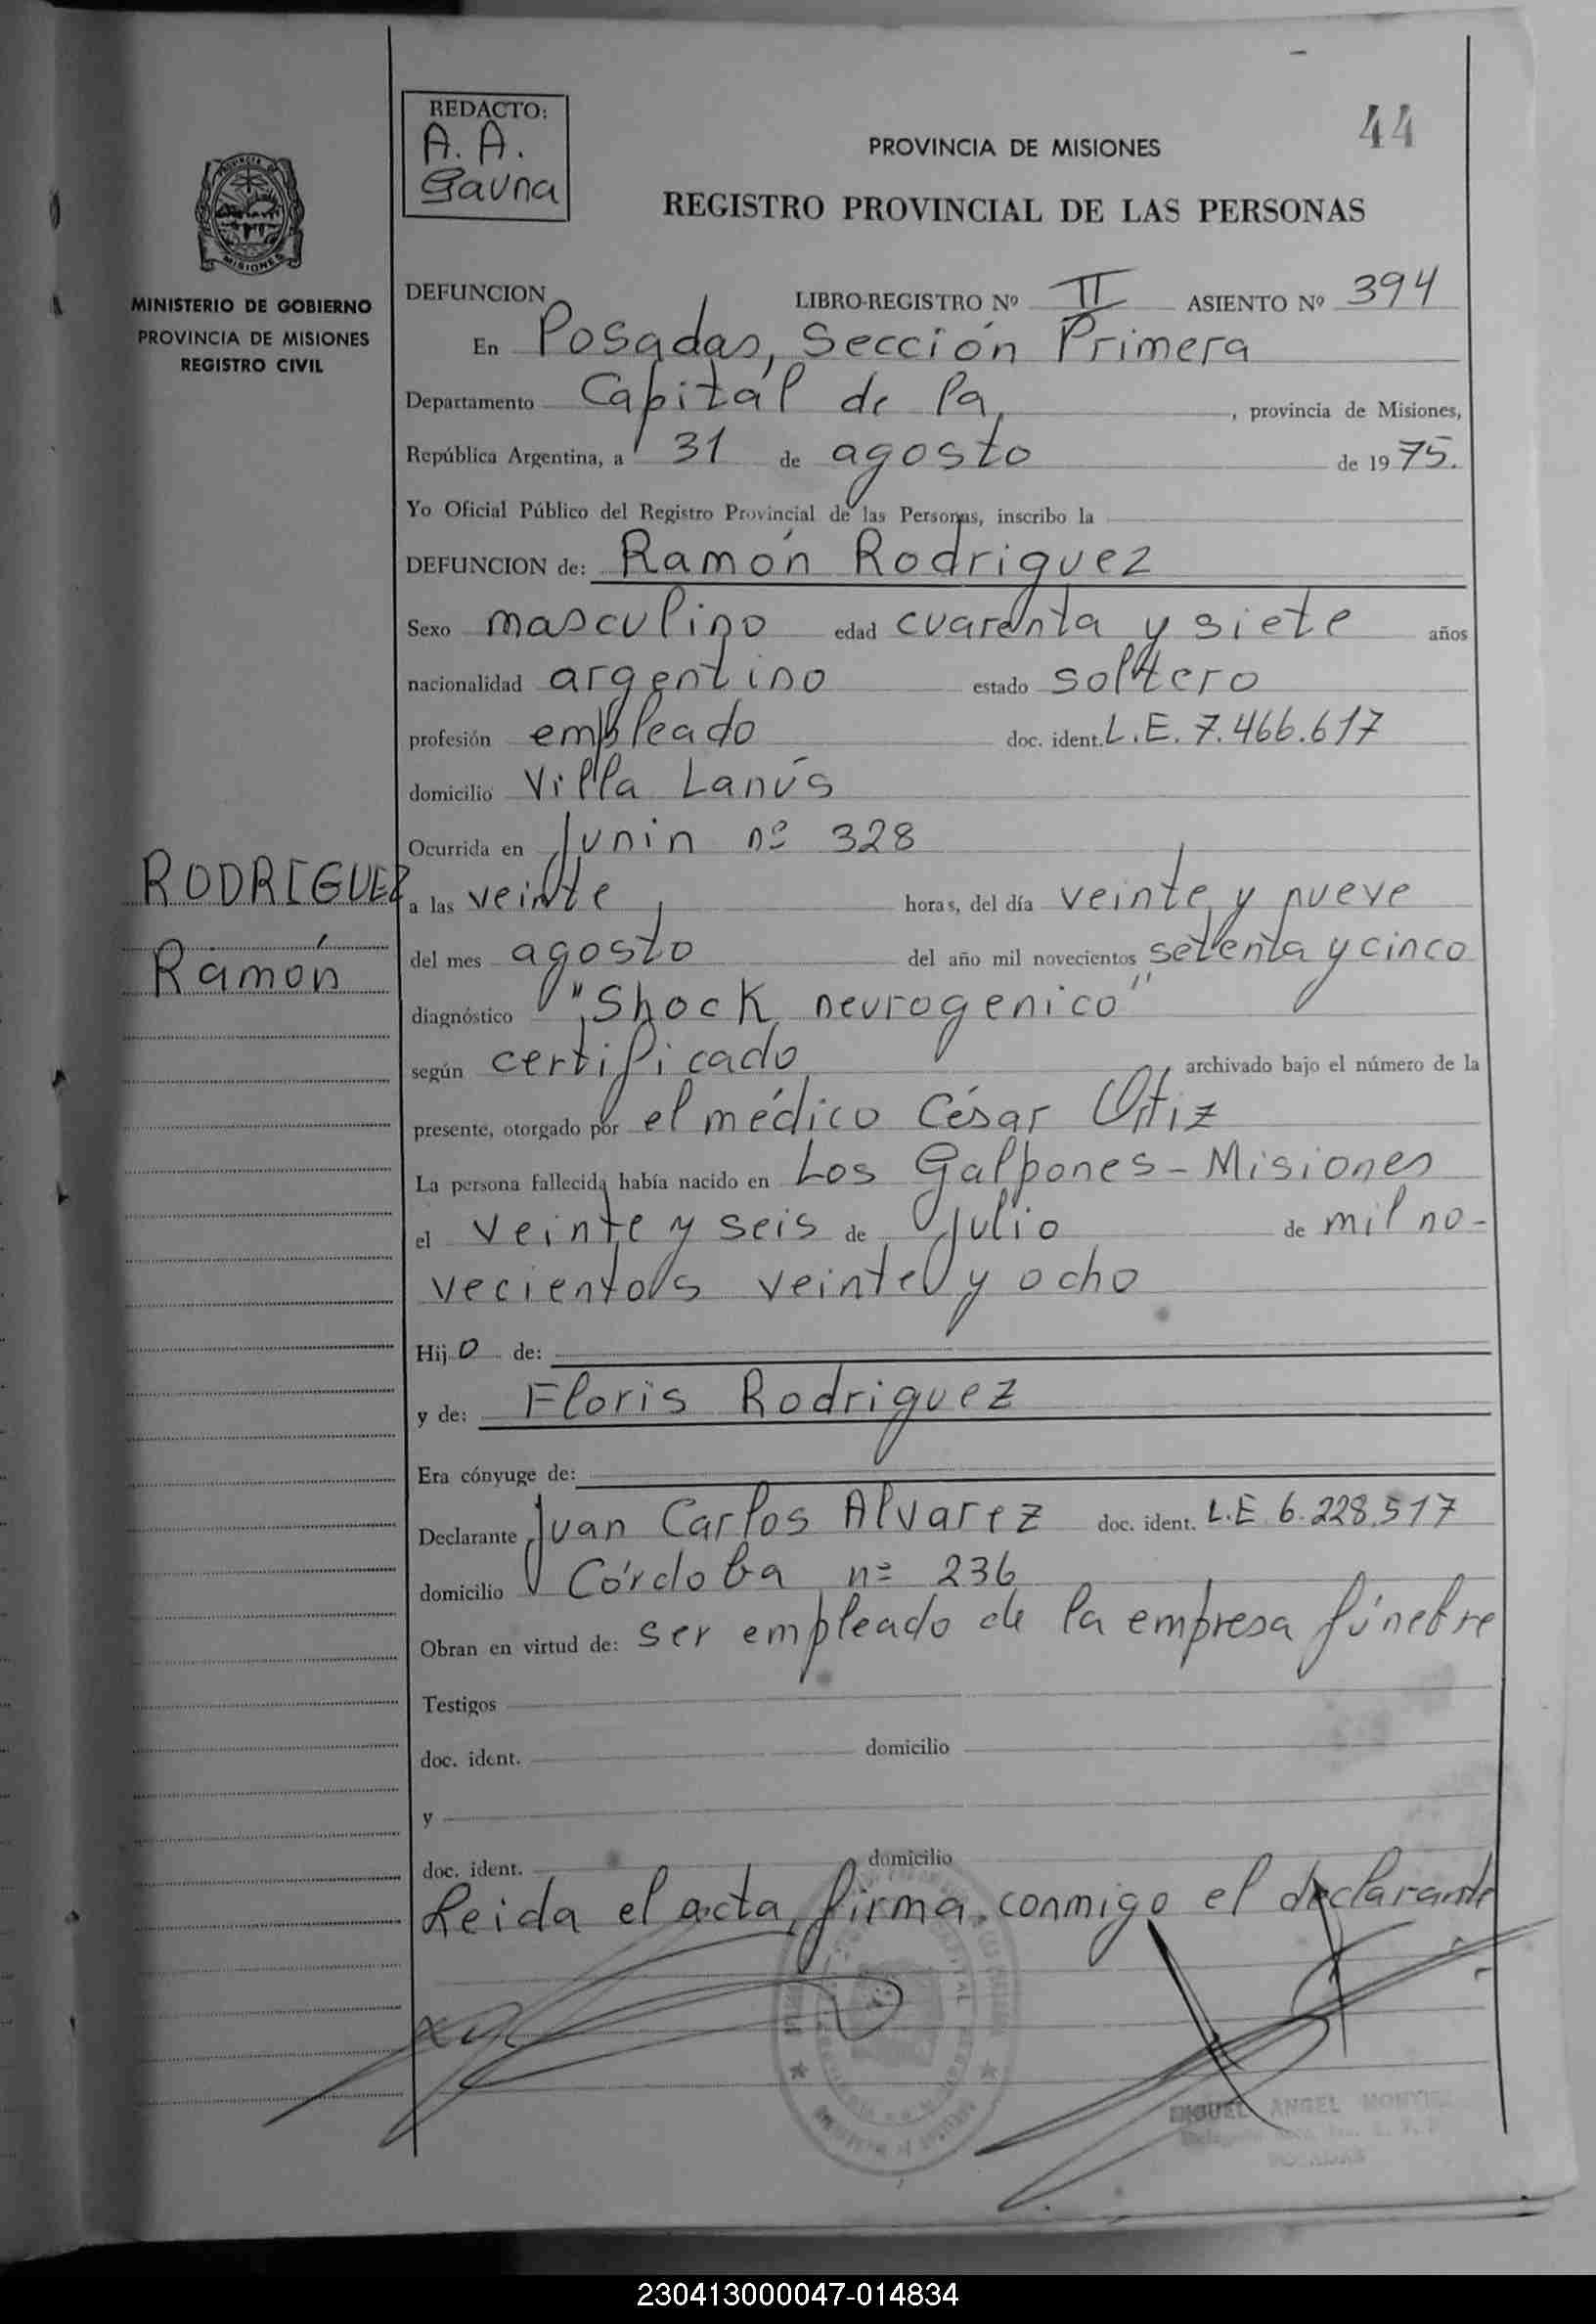 44
REDACTO:
A. A.
Gauna
PROVINCIA DE MISIONES
REGISTRO PROVINCIAL DE LAS PERSONAS
MISIONES
MINISTERIO DE GOBIERNO
PROVINCIA DE MISIONES
REGISTRO CIVIL
DEFUNCION LIBRO-REGISTRO Nº II ASIENTO Nº 394
En Posadas, Sección Primera
Departamento Capital de la, , provincia de Misiones,
República Argentina, a 31 de agosto de 1975.
Yo Oficial Público del Registro Provincial de las Personas, inscribo la
DEFUNCION de: Ramón Rodriguez
Sexo masculino edad cuarenta y siete años
nacionalidad argentino estado soltero
profesión empleado doc. ident. L.E. 7.466.617
domicilio Villa Lanús
Ocurrida en Junin nº 328
RODRIGUEZ
Ramón
a las veinte horas, del día veinte y nueve
del mes agosto del año mil novecientos setenta y cinco
diagnóstico "Shock neurogenico"
según certificado archivado bajo el número de la
presente, otorgado por el médico César Ortiz
La persona fallecida había nacido en Los Galpones - Misiones
el veinte y seis de Julio de mil no-
vecientos veinte y ocho
Hijo de:
y de: Floris Rodriguez
Era cónyuge de:
Declarante Juan Carlos Alvarez doc. ident. L.E 6.228.517
domicilio Córdoba nº 236
Obran en virtud de: ser empleado de la empresa fúnebre
Testigos
doc. ident. domicilio
y
doc. ident. domicilio
Leida el acta, firma conmigo el declarante
MIGUEL ANGEL
POSADAS
230413000047-014834